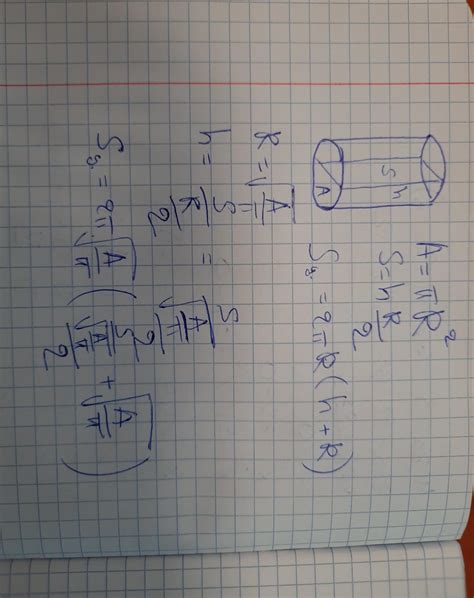 A = πR²
S = h R/2
S = 2πR(h + R)
S h
A
R = √(A/π)
h = S/(R/2) = S/(√(A/π)/2)
S = 2π√(A/π) (S/(√(A/π)/2) + √(A/π))